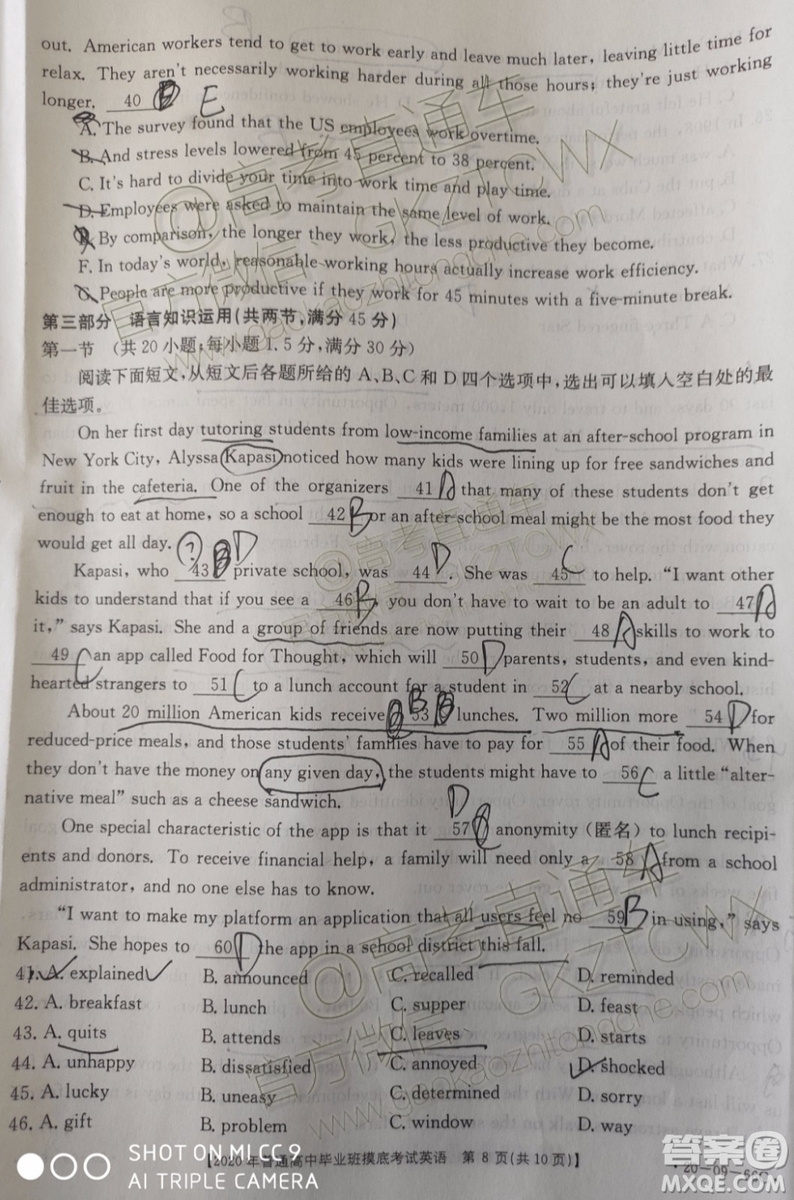 out. American workers tend to get to work early and leave much later, leaving little time for
relax. They aren't necessarily working harder during all those hours; they're just working
longer. 40 B E
A. The survey found that the US employees work overtime.
B. And stress levels lowered from 45 percent to 38 percent.
C. It's hard to divide your time into work time and play time.
D. Employees were asked to maintain the same level of work.
By comparison, the longer they work, the less productive they become.
F. In today's world, reasonable working hours actually increase work efficiency.
G. People are more productive if they work for 45 minutes with a five-minute break.
第三部分 语言知识运用(共两节,满分 45 分)
第一节 (共 20 小题;每小题 1.5 分,满分 30 分)
阅读下面短文,从短文后各题所给的 A、B、C 和 D 四个选项中,选出可以填入空白处的最
佳选项。
On her first day tutoring students from low-income families at an after-school program in
New York City, Alyssa Kapasi noticed how many kids were lining up for free sandwiches and
fruit in the cafeteria. One of the organizers 41 A that many of these students don't get
enough to eat at home, so a school 42 B or an after-school meal might be the most food they
would get all day. ?
Kapasi, who 43 B D private school, was 44 D. She was 45 C to help. "I want other
kids to understand that if you see a 46 B, you don't have to wait to be an adult to 47 A
it," says Kapasi. She and a group of friends are now putting their 48 A skills to work to
49 C an app called Food for Thought, which will 50 D parents, students, and even kind-
hearted strangers to 51 C to a lunch account for a student in 52 C at a nearby school.
About 20 million American kids receive 53 B lunches. Two million more 54 D for
reduced-price meals, and those students' families have to pay for 55 A of their food. When
they don't have the money on any given day, the students might have to 56 C a little "alter-
native meal" such as a cheese sandwich.
One special characteristic of the app is that it 57 D anonymity (匿名) to lunch recipi-
ents and donors. To receive financial help, a family will need only a 58 A from a school
administrator, and no one else has to know.
"I want to make my platform an application that all users feel no 59 B in using," says
Kapasi. She hopes to 60 D the app in a school district this fall.
41. A. explained B. announced C. recalled D. reminded
42. A. breakfast B. lunch C. supper D. feast
43. A. quits B. attends C. leaves D. starts
44. A. unhappy B. dissatisfied C. annoyed D. shocked
45. A. lucky B. uneasy C. determined D. sorry
46. A. gift B. problem C. window D. way
【2020 年普通高中毕业班摸底考试英语 第 8 页(共 10 页)】
SHOT ON MI CC 9
AI TRIPLE CAMERA
@高考直通车
官方微信: GKZTCWX
www.gaokaozhitongche.com
答案圈
MXQE.COM